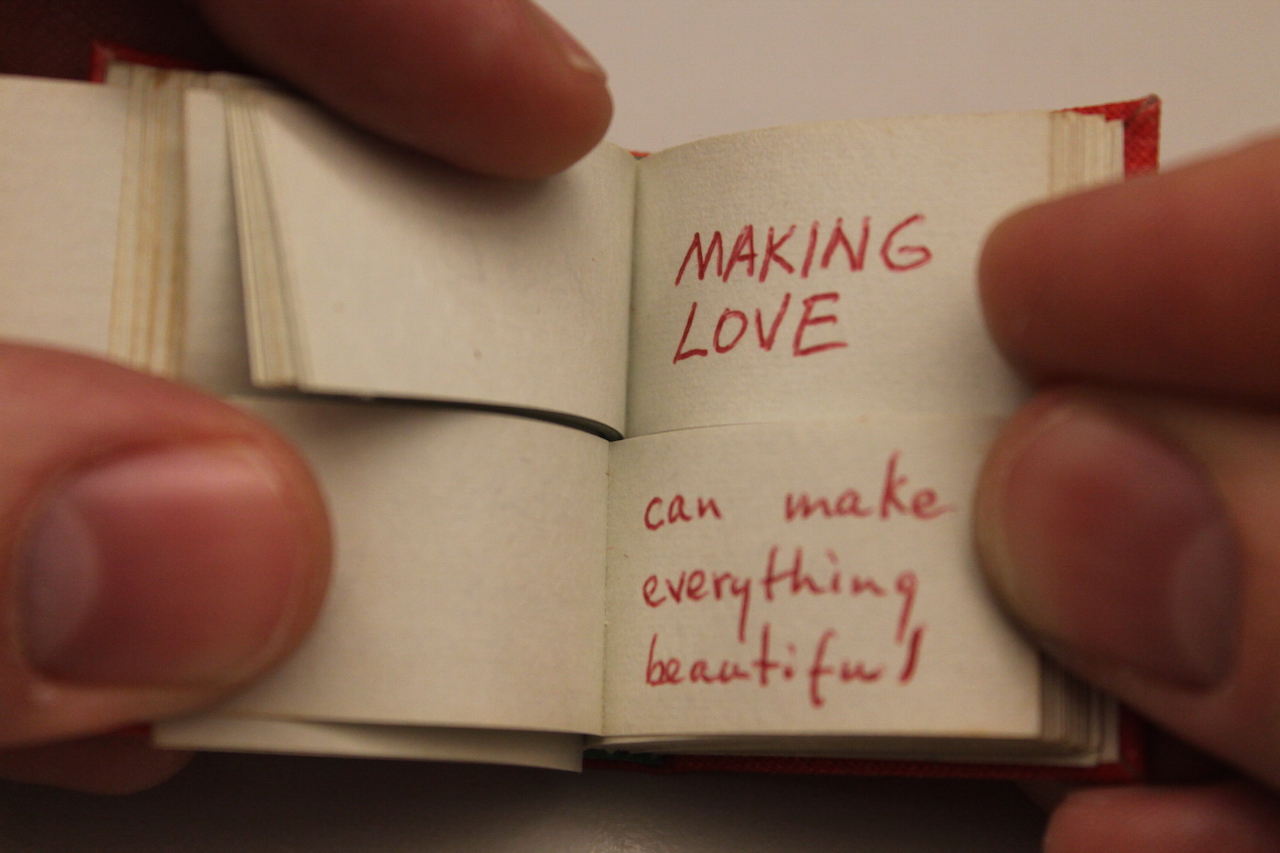 MAKING
LOVE
can make
everything
beautiful